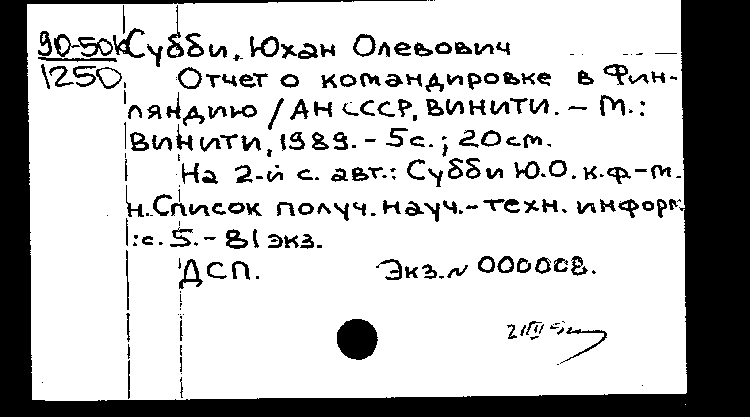 90-50к Субби, Юхан Олевович
1250 Отчет о командировке в Фин-
ляндию / АН СССР, ВИНИТИ. - М.:
ВИНИТИ, 1989. - 5с.; 20см.
На 2-й с. авт.: Субби Ю.О. к.ф.-м.
н. Список получ. науч.-техн. информ.
: с. 5. - 81 экз.
ДСП. Экз. № 000008.